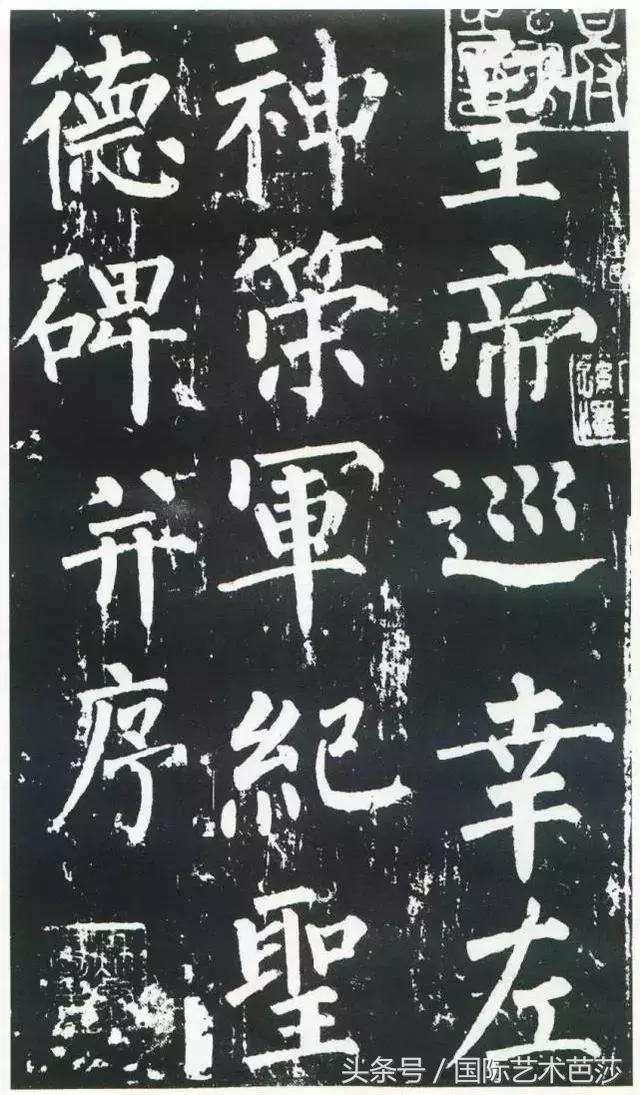 皇帝巡幸左
神策軍紀聖
德碑并序
头条号 / 国际艺术芭莎